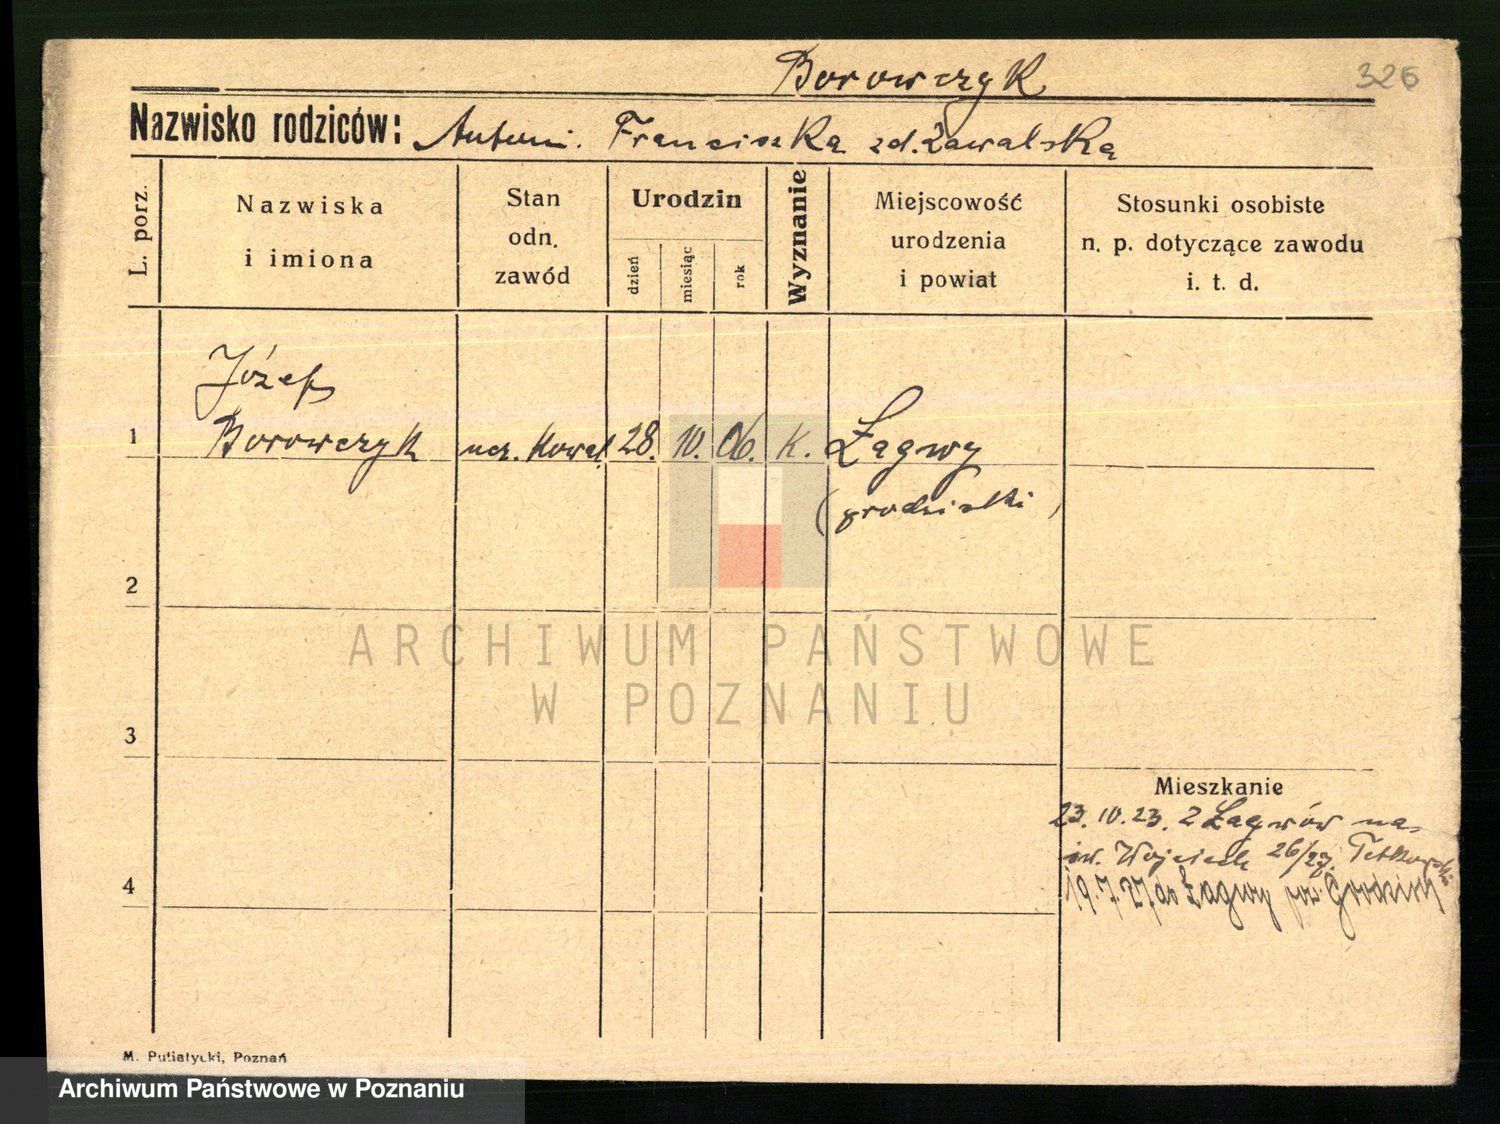 Borowczyk 326
Nazwisko rodziców: Antoni. Franciszka zd. Zawalska
L. porz.
Nazwiska
i imiona
Stan
odn.
zawód
Urodzin
dzień
miesiąc
rok
Wyznanie
Miejscowość
urodzenia
i powiat
Stosunki osobiste
n. p. dotyczące zawodu
i. t. d.
Józef
1 Borowczyk ucz. kowal. 28. 10. 06. K. Łagwy
(grodziski)
2
ARCHIWUM PAŃSTWOWE
W POZNANIU
3
Mieszkanie
23. 10. 23. z Łagwów na
św. Wojciech 26/27.
4
19. 7. 27 do Łagwy pow. Grodzisk
M. Putiatycki, Poznań
Archiwum Państwowe w Poznaniu